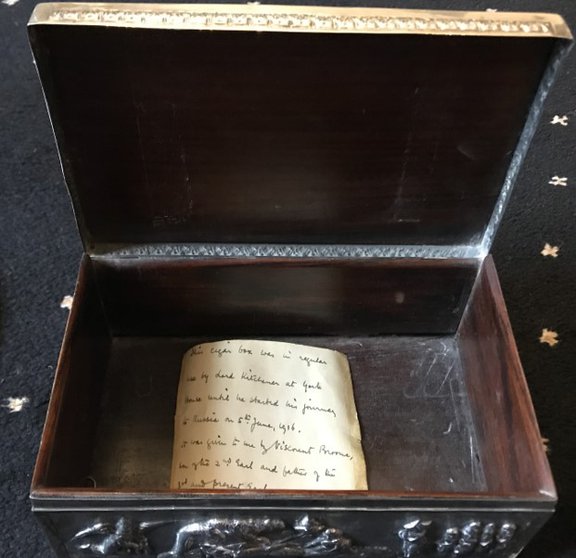 This cigar box was in regular
use by Lord Kitchener at York
House until he started his journey
to Russia on 5th June, 1916.
It was given to me by Viscount Broome,
son of the 2nd Earl and father of the
3rd and present Earl